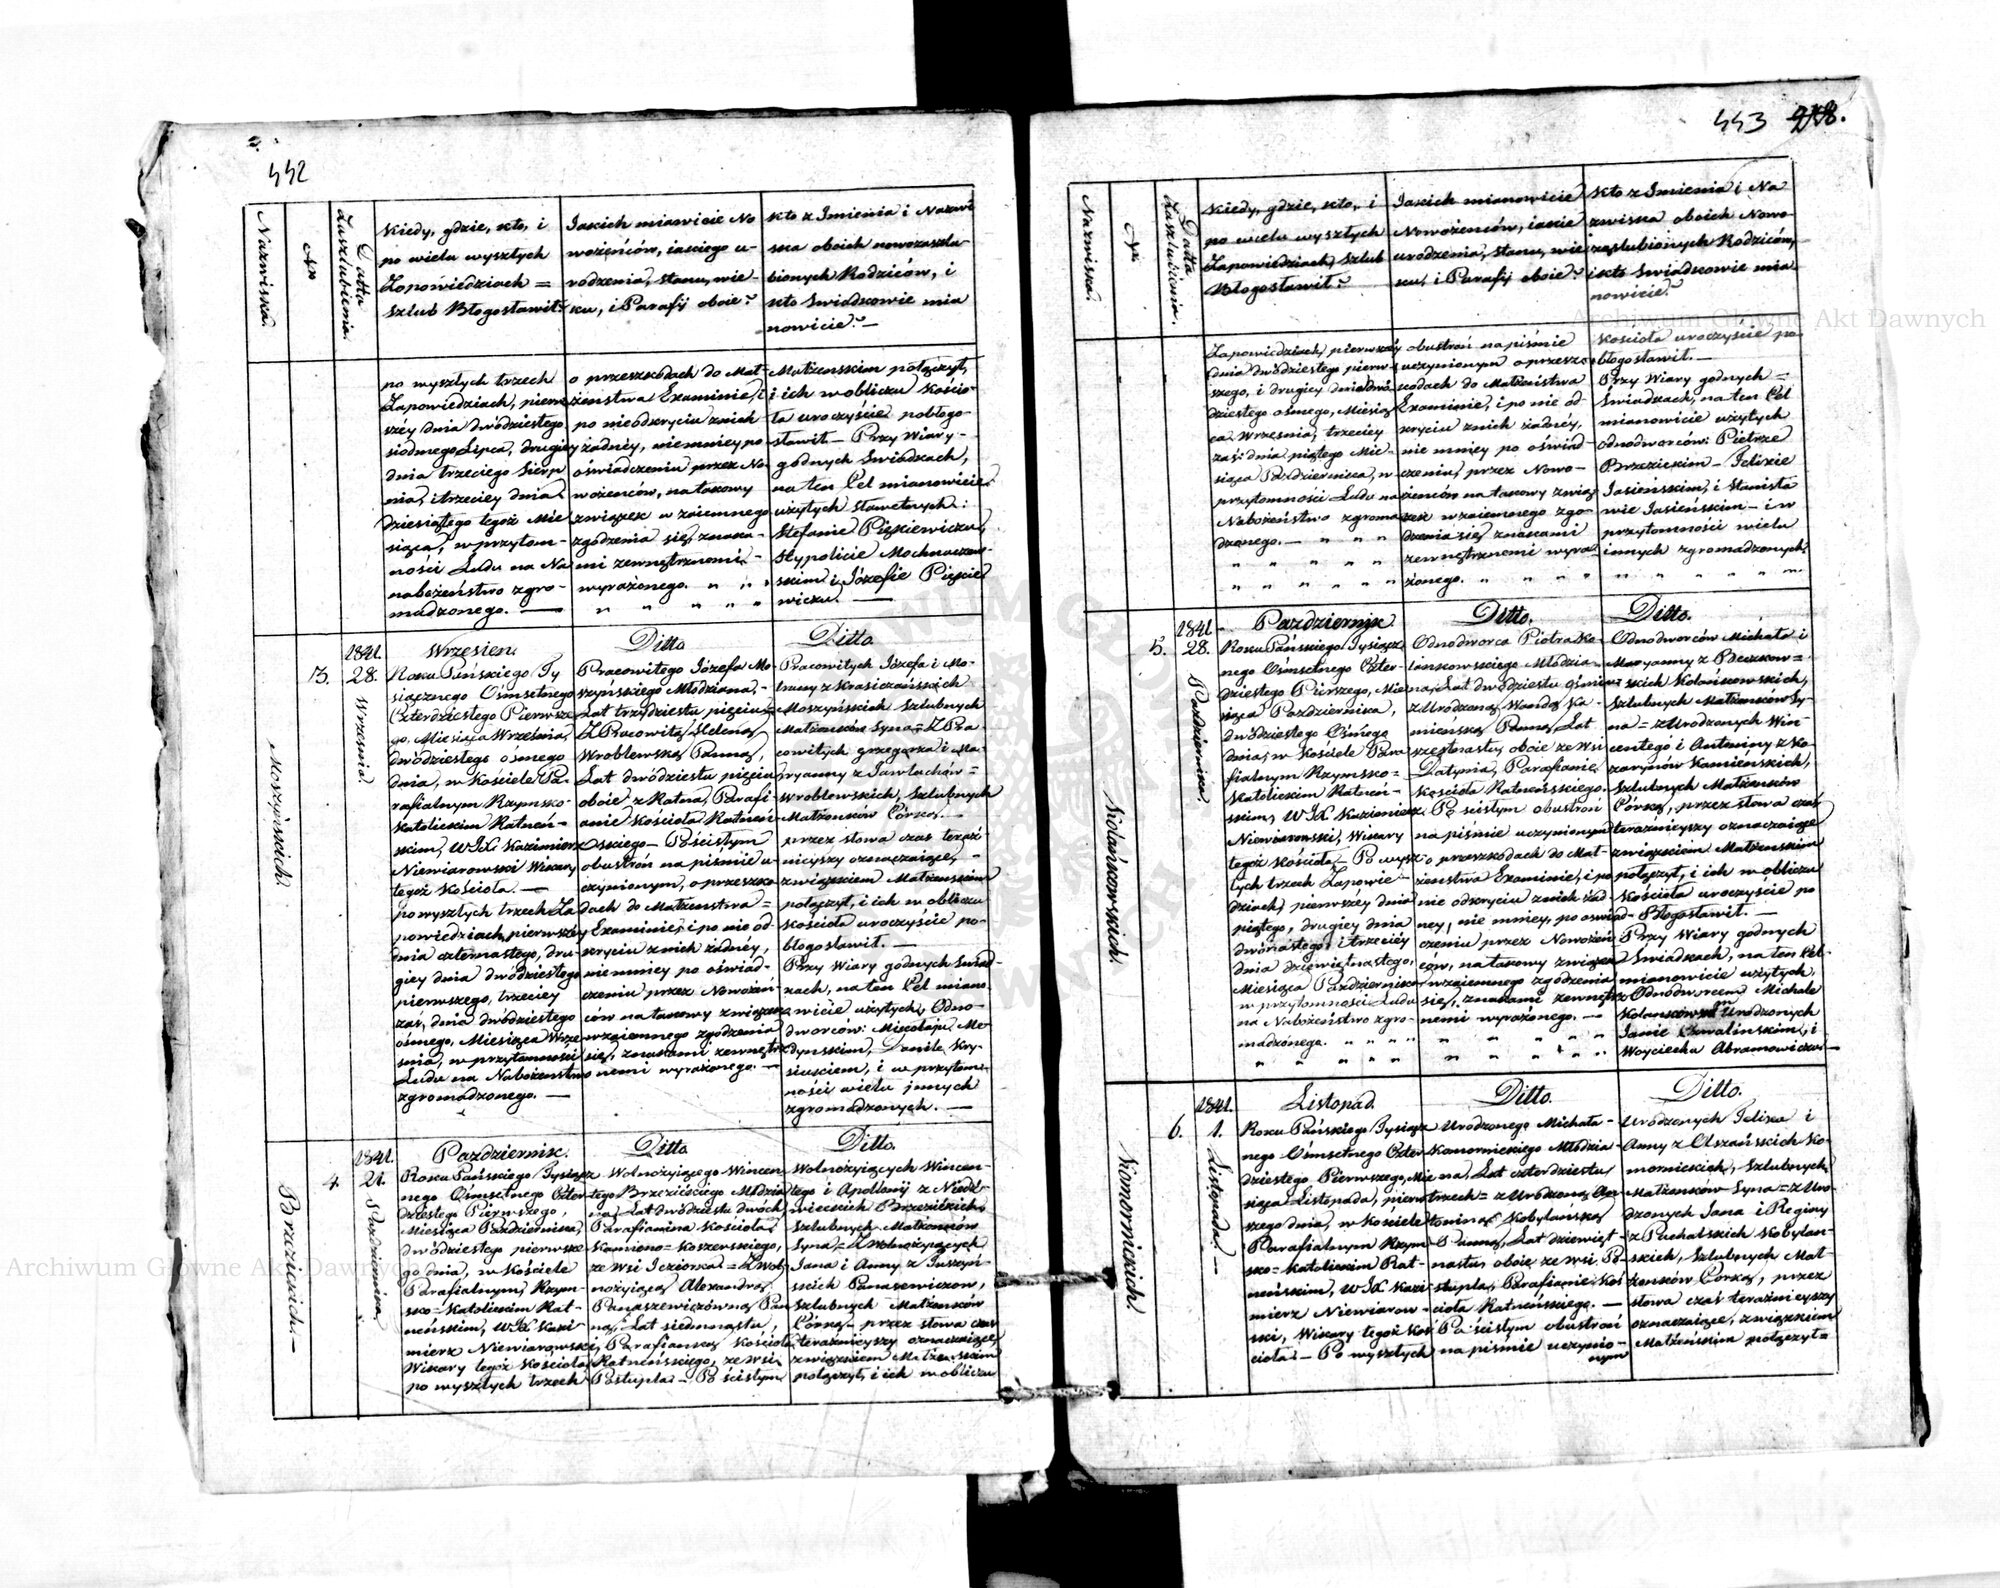 442
Nazwiska.
№
Datta Zaszlubienia
Kiedy, gdzie, kto, i
po wielu wyszłych
Zapowiedziach =
szlub Błogosławił?
Jakich mianwicie No
wożeńców, iakiego u-
rodzenia, stanu, wie-
ku, i Parafij oboie?
Kto z Imienia i Nazwi
ska oboich nowozaszlu-
bionych Rodziców, i
kto Swiadkowie mia
nowicie? —
po wyszłych trzech
Zapowiedziach, pierw
szey dnia dwódziestego
siódmego Lipca, drugiey
dnia trzeciego Sierp
nia, i trzeciey dnia
dziesiątego tegoż Mie
siąca, w przytom-
ności Ludu na Na
nabożeństwo zgro-
madzonego. —
o przeszkodach do Mał-
żeństwa Examinie, i
po nieodkryciu znich
żadney, niemniey po
oświadczeniu przez No-
wożeńców, na takowy
związek w zaiemnego
zgodzenia się, znaka-
mi zewnętrznemi -
wyrażonego. " " "
" " " " "
Małżenskim połączył,
i ich w obliczu Kościo-
ła uroczyście pobłogo-
sławił — Przy Wiary-
godnych Swiadkach,
na ten Cel mianowicie
użytych sławetnych:
Stefanie Piękiewiczu,
Hypolicie Mochnaczew-
skim i Józefie Piękie
wiczu. —
Moszyńskich.
3.
1841.
28. Września.
Wrzesien.
Roku Pańskiego Ty
siącznego Ośmsetnego
Czterdziestego Pierwsze
go, Miesiąca Września,
dwódziestego osmego
dnia, w Kościele Pa-
rafialnym Rzymsko-
Katolickim Ratneń-
skim, WJX. Kazimierz
Niewiarowski Wikary
tegoż Kościoła. —
po wyszłych trzech Za
powiedziach, pierwszey
dnia czternastego, dru-
giey dnia dwódziestego
pierwszego, trzeciey
zaś, dnia dwódziestego
ósmego, Miesiąca Wrze
śnia, w przytomności
Ludu na Nabożenstwo
zgromadzonego. —
Ditto
Pracowitego Józefa Mo-
szynskiego Młodziana, -
Lat trzydziestu pięciu =
Z Pracowitą Heleną
Wroblewską Panną,
Lat dwódziestu pięciu
oboie z Ratna, Parafi-
anie Kościoła Ratneń
skiego — Po ścisłym
obustroń na piśmie u-
czynionym, o przeszko
dach do Małżenstwa =
Examinie, i po nie od-
kryciu z nich żadney,
niemniey po oświad-
czeniu przez Nowożeń-
ców na takowy związek
wzaiemnego zgodzenia
się, znakami zewnętrz
nemi wyrażonego. —
Ditto
Pracowitych Józefa i Mo-
truny z Krasiczańskich
Moszyńskich Szlubnych
Małżonków Syna = Z Pra-
cowitych Grzegorza i Ma-
ryanny z Jawłuchów =
Wroblewskich, Szlubnych
Małżonków Córką. —
przez słowa czas teraź
nieyszy oznaczaiące, -
związkiem Małżenskim
połączył, i ich w obliczu
Kościoła uroczyście po-
błogosławił. —
Przy Wiary godnych Swiad-
kach, na ten Cel miano
wicie użytych, Odno-
dworców: Mikołaju Me-
dynskim, Danile Kry-
siuskim, i w przytom-
ności wielu jnnych
zgromadzonych. —
Brzezickich. —
4.
1841.
21. Pazdziernika.
Pazdziernik.
Roku Pańskiego Tysiącz
nego Ośmsetnego Czter
dziestego Pierwszego,
Miesiąca Pazdziernika,
dwódziestego pierwsze
go dnia, w Kościele
Parafialnym, Rzym-
sko=Katolickim Rat-
neńskim, WJX Kazi-
mierz Niewiarowski,
Wikary tegoż Kościoła
po wyszłych trzech
Ditto
Wolnożyiącego Wincen-
tego Brzezickiego Młodzia
na, Lat dwódziestu dwóch
Parafianina Kościoła
Kamieno=Koszerskiego,
ze Wsi Jeziorka = Z Wol
nożyiącą Alexandrą
Panaszewiczówną Pan
ną, Lat siedmnastu,
Parafianką Kościoła
Ratneńskiego, ze Wsi
Postupla — Po ścisłym
Ditto.
Wolnożyiących Wincen-
tego i Apollonij z Niedź-
wieckich Brzezickich
Szlubnych Małżonków
Syna = Z Wolnożyiących
Jana i Anny z Juszyń-
skich Panasewiczow,
Szlubnych Małżonków
Córką — przez słowa czas
teraźnieyszy oznaczaiące,
związkiem Małżenskim
połączył, i ich w obliczu
443
Nazwiska.
№
Datta Zaszlubienia.
Kiedy, gdzie, kto, i
po wielu wyszłych
Zapowiedziach, szlub
Błogosławił?
Jakich mianowicie
Nowożeńców, iakie
urodzenia, stanu, wie
ku, i Parafij oboie?
Kto z Imienia i Na
zwiska oboich Nowo-
zaszlubionych Rodziców,
i kto Swiadkowie mia
nowicie?
Zapowiedziach, pierwszey
dnia dwódziestego pierw-
szego, i drugiey dnia dwó
dziestego ósmego, Miesią
ca Września, trzeciey
zaś: dnia piątego Mie-
siąca Pazdziernika, w
przytomności Ludu na
Nabożeństwo zgroma
dzonego. — " " "
" " " " "
" " " " "
obustroń na piśmie
uczynionym o przesz
kodach do Małżeństwa
Examinie, i po nie od
kryciu znich żadney,
nie mniey po oświad
czeniu, przez Nowo-
żeńców na takowy zwią
zek wzaiemnego zgo-
dzenia się, znakami
zewnętrznemi wyra
żonego. " " " "
Kościoła uroczyście po-
błogosławił. —
Przy Wiary godnych =
Świadkach, na ten Cel
mianowicie użytych
odnodworców: Pietrze
Brzezickim — Felixie
Jasieńskim, i Stanisła
wie Jasieńskim — i w
przytomności wielu
innych zgromadzonych.
" " " " " "
Kolańkowskich.
5.
1841.
28. Pazdziernika.
Pazdziernik
Roku Pańskiego Tysiącz
nego Ośmsetnego Czter-
dziestego Pierszego, Mie
siąca Pazdziernika,
dwódziestego Ośmego
dnia, w Kościele Para
fialnym Rzymsko=
Katolickim Ratneń-
skim, WJX Kazimierz
Niewiarowski, Wikary
tegoż Kościoła — Po wysz-
łych trzech Zapowie-
dziach, pierwszey dnia
piątego, drugiey dnia
dwónastego, i trzeciey
dnia dziewiętnastego,
Miesiąca Pazdziernika,
w przytomności Ludu
na Nabożeństwo zgro-
madzonego. " " " "
" " " "
Ditto.
Odnodworca Piotra Ko-
lańkowskiego Młodzia-
na, Lat dwódziestu ośmiu
z Urodzoną Wandą Ka-
mieńską Panną, Lat
szesnastu, oboie ze Wsi
Datynia, Parafianie
Kościoła Ratneńskiego.
Po ścisłym obustroń
na piśmie uczynionym
o przeszkodach do Mał-
żenstwa Examinie, i po
nie odkryciu znich żad-
ney, nie mniey, po oświad-
czeniu przez Nowożeń
ców, na takowy związek
wzaiemnego zgodzenia
się, znakami zewnętrz
nemi wyrażonego. —
" " " " "
" " " " "
Ditto.
Odnodworców Michała i
Maryanny z Beczkow=
skich Kolańkowskich,
Szlubnych Małżonków Sy-
na = z Urodzonych Win-
centego i Antoniny z Ko-
zarynów Kamieńskich,
Szlubnych Małżonków
Córką, przez słowa czas
teraźnieyszy oznaczaiące
związkiem Małżenskim
połączył, i ich w obliczu
Kościoła uroczyście po
Błogosławił. —
Przy Wiary godnych
Swiadkach, na ten Cel-
mianowicie użytych,
Odnodworcem Michale
Kolankowskim Urodzonych
Janie Chwalinskim, i
Woyciechu Abramowiczu —
Komornickich.
6.
1841.
1. Listopada. —
Listopad.
Roku Pańskiego Tysiącz
nego Ośmsetnego Czter
dziestego Pierwszego, Mie
siąca Listopada, pierw
szego dnia, w Kościele
Parafialnym Rzym
sko=Katolickim Rat-
neńskim, WJX Kazi
mierz Niewiarow-
ski, Wikary tegoż Koś
cioła — Po wyszłych
Ditto.
Urodzonego Michała -
Komornickiego Młodzia-
na, Lat czterdziestu
trzech = z Urodzoną An-
toniną Kobylańską
Panną, Lat dziewięt-
nastu, oboie ze Wsi Po-
stupla, Parafianie Koś
cioła Ratneńskiego. —
Po ścisłym obustroń
na piśmie uczynio-
nym
Ditto.
Urodzonych Felixa i
Anny z Uszańskich Ko-
mornickich, Szlubnych
Małżonków Syna = z Uro-
dzonych Jana i Reginy
z Puchalskich Kobylan-
skich, Szlubnych Mał-
żonków Córką, przez
słowa czas teraźnieyszy
oznaczaiące, związkiem
Małżeńskim połączył=
Archiwum Główne Akt Dawnych
Archiwum Główne Akt Dawnych